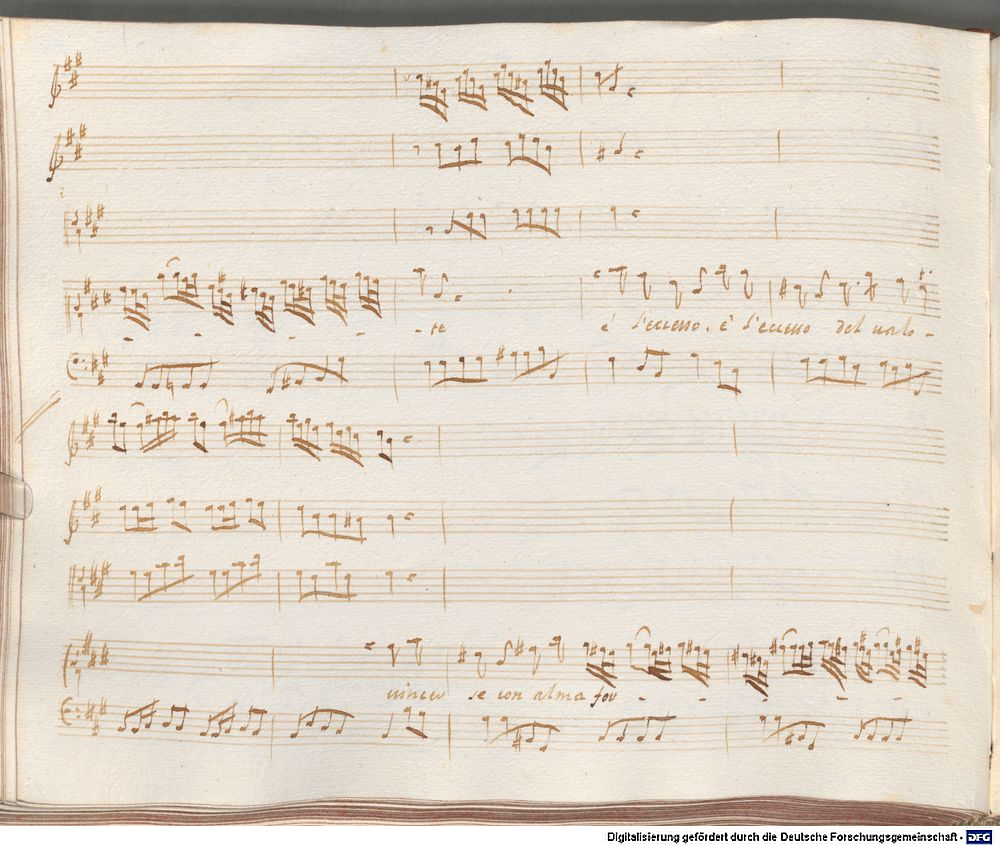 - - - - te è l'eccesso. è l'eccesso del valo -
vincer se con alma for - - - -
Digitalisierung gefördert durch die Deutsche Forschungsgemeinschaft - DFG